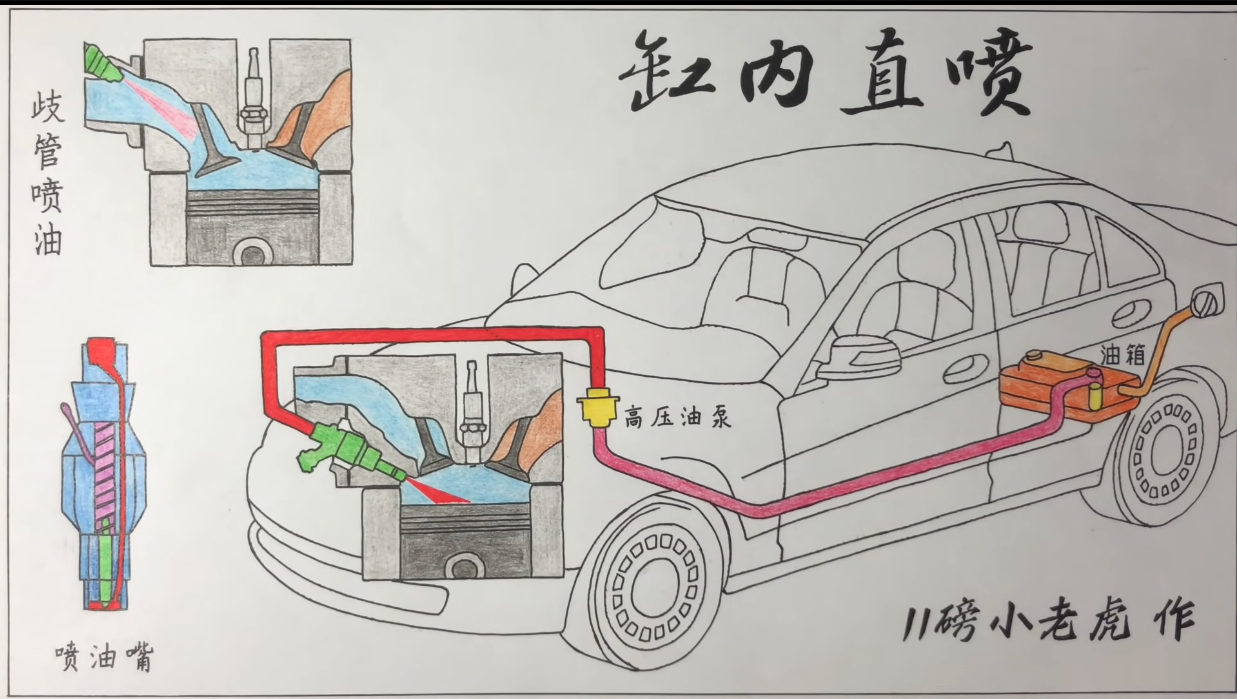 缸内直喷
歧管喷油
油箱
高压油泵
喷油嘴
11磅小老虎 作